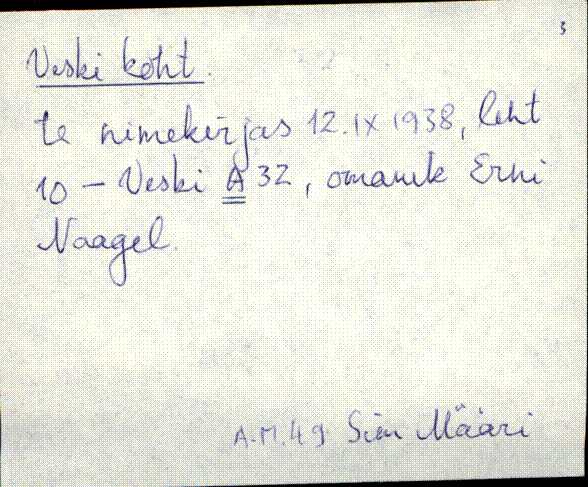 3
Veski koht.
te nimekirjas 12.IX 1938, leht
10 – Veski A 32, omanik Erni
Naagel.
A.M.49 Siim Määri